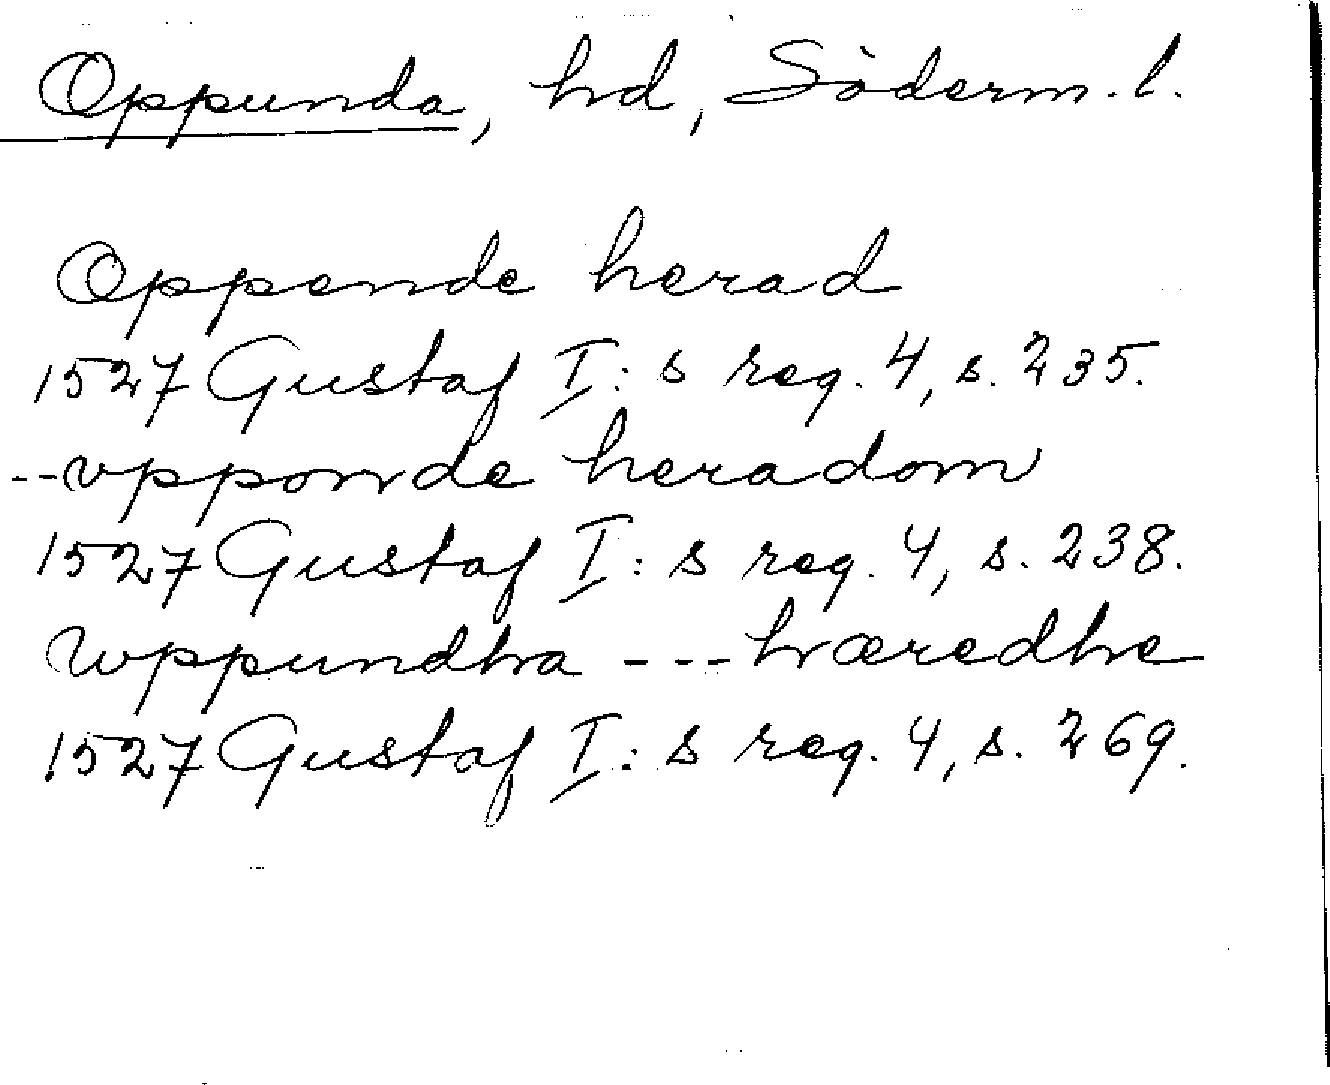 Oppunda, hd, Söderm. l.
Oppende herad
1527 Gustaf I: s reg. 4, s. 235.
--vpponde heradom
1527 Gustaf I: s reg. 4, s. 238.
Wppundha --- hæredhe
1527 Gustaf I: s reg. 4, s. 269.